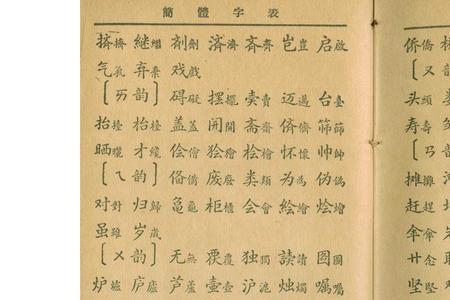 簡體字表
挤擠 継繼 剤劑 済濟 斉齊 岂豈 启啟
气氣 弃棄 戏戲
〔ㄞ韵〕 碍礙 摆擺 卖賣 迈邁 台臺
抬擡 枱檯 盖蓋 斋齋 侪儕 筛篩
晒曬 才纔 侩儈 桧檜 怀懷 帅帥
〔ㄟ韵〕 俻備 废廢 类類 为為 伪偽
对對 归歸 龟龜 柜櫃 会會 絵繪 烩燴
虽雖 岁歲
〔ㄨ韵〕 无無 覆 独獨 読讀
炉爐 庐廬 芦蘆 壶壺 沪滬 烛燭 嘱囑
侨僑
〔ㄡ
头頭
寿壽
〔ㄢ
摊攤
赶趕
伞傘
廿念
坚堅